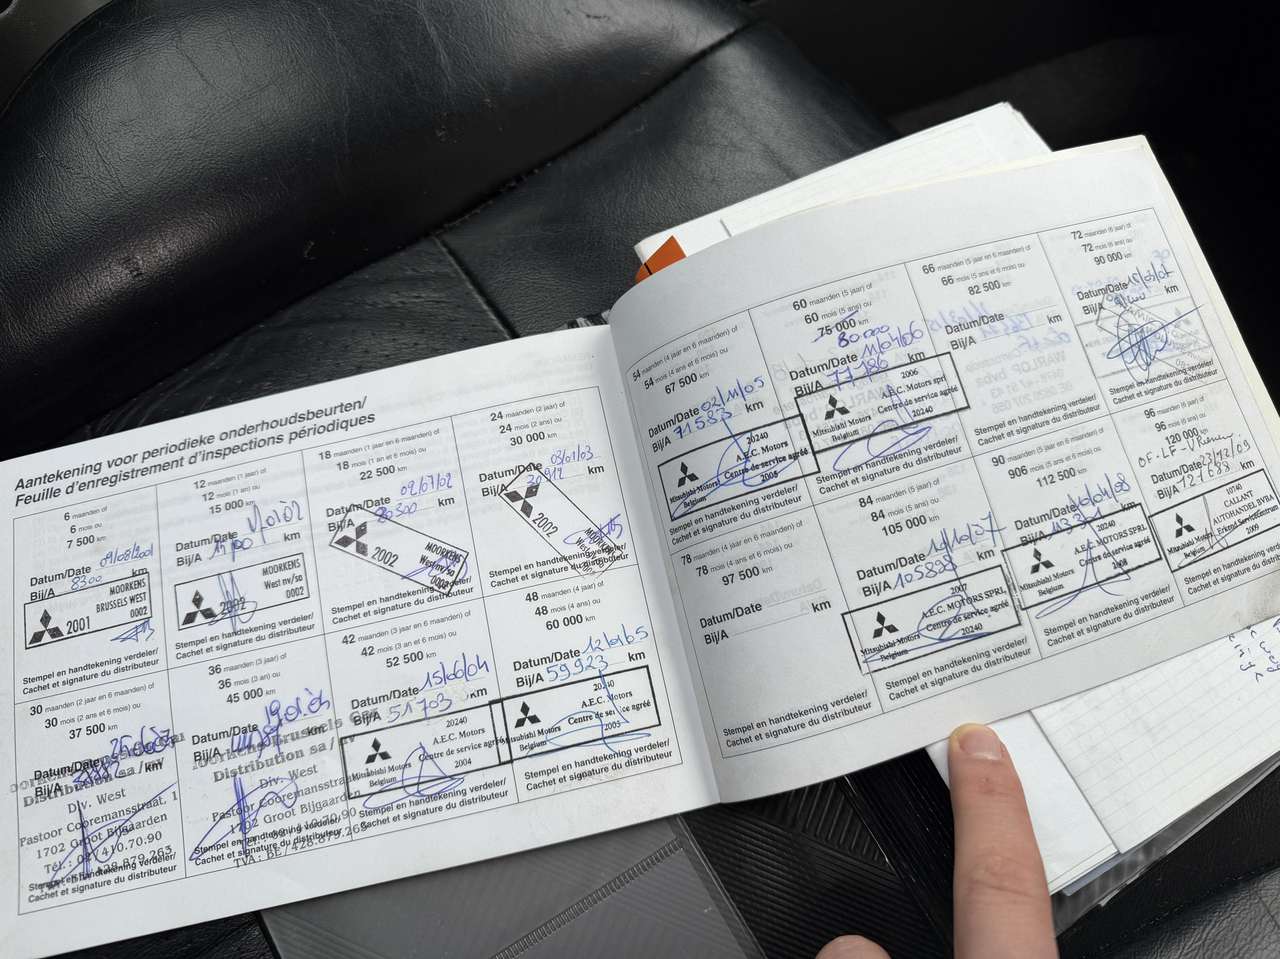 Aantekening voor periodieke onderhoudsbeurten/
Feuille d'enregistrement d'inspections périodiques
6 maanden of
6 mois ou
7 500 km
Datum/Date 09/08/2001
Bij/A 8300 km
MOORKENS
BRUSSELS WEST
2001 0002
Stempel en handtekening verdeler/
Cachet et signature du distributeur
12 maanden (1 jaar) of
12 mois (1 an) ou
15 000 km
Datum/Date
Bij/A km
MOORKENS
West nv/so
2002 0002
Stempel en handtekening verdeler/
Cachet et signature du distributeur
18 maanden (1 jaar en 6 maanden) of
18 mois (1 an et 6 mois) ou
22 500 km
Datum/Date 02/07/02
Bij/A km
2002 MOORKENS
West nv/so
0002
Stempel en handtekening verdeler/
Cachet et signature du distributeur
24 maanden (2 jaar) of
24 mois (2 ans) ou
30 000 km
Datum/Date 03/01/03
Bij/A km
2002 MOORKENS
Stempel en handtekening verdeler/
Cachet et signature du distributeur
30 maanden (2 jaar en 6 maanden) of
30 mois (2 ans et 6 mois) ou
37 500 km
Datum/Date
Bij/A km
Distribution sa / nv
Div. West
Pastoor Cooremansstraat, 1
1702 Groot Bijgaarden
Tél.: 02/410.70.90
428.879.263
Stempel en handtekening verdeler/
Cachet et signature du distributeur
36 maanden (3 jaar) of
36 mois (3 ans) ou
45 000 km
Datum/Date
Bij/A
Distribution sa / nv
Div. West
Pastoor Cooremansstraat
1702 Groot Bijgaarden
TVA: BE / 428.879.263
Stempel en handtekening verdeler/
Cachet et signature du distributeur
42 maanden (3 jaar en 6 maanden) of
42 mois (3 an et 6 mois) ou
52 500 km
Datum/Date 15/06/04
Bij/A 51703 km
20240
A.E.C. Motors
Mitsubishi Motors Centre de service agréé
Belgium 2004
Stempel en handtekening verdeler/
Cachet et signature du distributeur
48 maanden (4 jaar) of
48 mois (4 ans) ou
60 000 km
Datum/Date
Bij/A 59923 km
20240
A.E.C. Motors
Mitsubishi Motors Centre de service agréé
Belgium 2005
Stempel en handtekening verdeler/
Cachet et signature du distributeur
54 maanden (4 jaar en 6 maanden) of
54 mois (4 ans et 6 mois) ou
67 500 km
Datum/Date 02/11/05
Bij/A 71583 km
20240
A.E.C. Motors
Mitsubishi Motors Centre de service agréé
Belgium 2005
Stempel en handtekening verdeler/
Cachet et signature du distributeur
60 maanden (5 jaar) of
60 mois (5 ans) ou
75 000 km
80 000
Datum/Date 11/04/06
Bij/A 77186 km
2006
A.E.C. Motors sprl
Mitsubishi Motors Centre de service agréé
Belgium 20240
Stempel en handtekening verdeler/
Cachet et signature du distributeur
66 maanden (5 jaar en 6 maanden) of
66 mois (5 ans et 6 mois) ou
82 500 km
Datum/Date
Bij/A km
Stempel en handtekening verdeler/
Cachet et signature du distributeur
72 maanden (6 jaar) of
72 mois (6 ans) ou
90 000 km
Datum/Date
Bij/A km
Stempel en handtekening verdeler/
Cachet et signature du distributeur
78 maanden (6 jaar en 6 maanden) of
78 mois (4 ans et 6 mois) ou
97 500 km
Datum/Date
Bij/A km
Stempel en handtekening verdeler/
Cachet et signature du distributeur
84 maanden (7 jaar) of
84 mois (5 ans) ou
105 000 km
Datum/Date
Bij/A 105838 km
2007
A.E.C. MOTORS SPRL
Mitsubishi Motors Centre de service agréé
Belgium 20240
Stempel en handtekening verdeler/
Cachet et signature du distributeur
90 maanden (5 jaar en 6 maanden) of
906 mois (5 ans et 6 mois) ou
112 500 km
Datum/Date
Bij/A km
20240
A.E.C. MOTORS SPRL
Mitsubishi Motors Centre de service agréé
Belgium 2008
Stempel en handtekening verdeler/
Cachet et signature du distributeur
96 maanden (6 jaar) of
96 mois (6 ans) ou
120 000 km
Datum/Date 23/12/09
Bij/A 121688 km
10740
GALLANT
AUTOHANDEL BVBA
Mitsubishi Motors Erkend ServiceCentrum
Belgium 2009
Stempel en handtekening verdeler/
Cachet et signature du distributeur